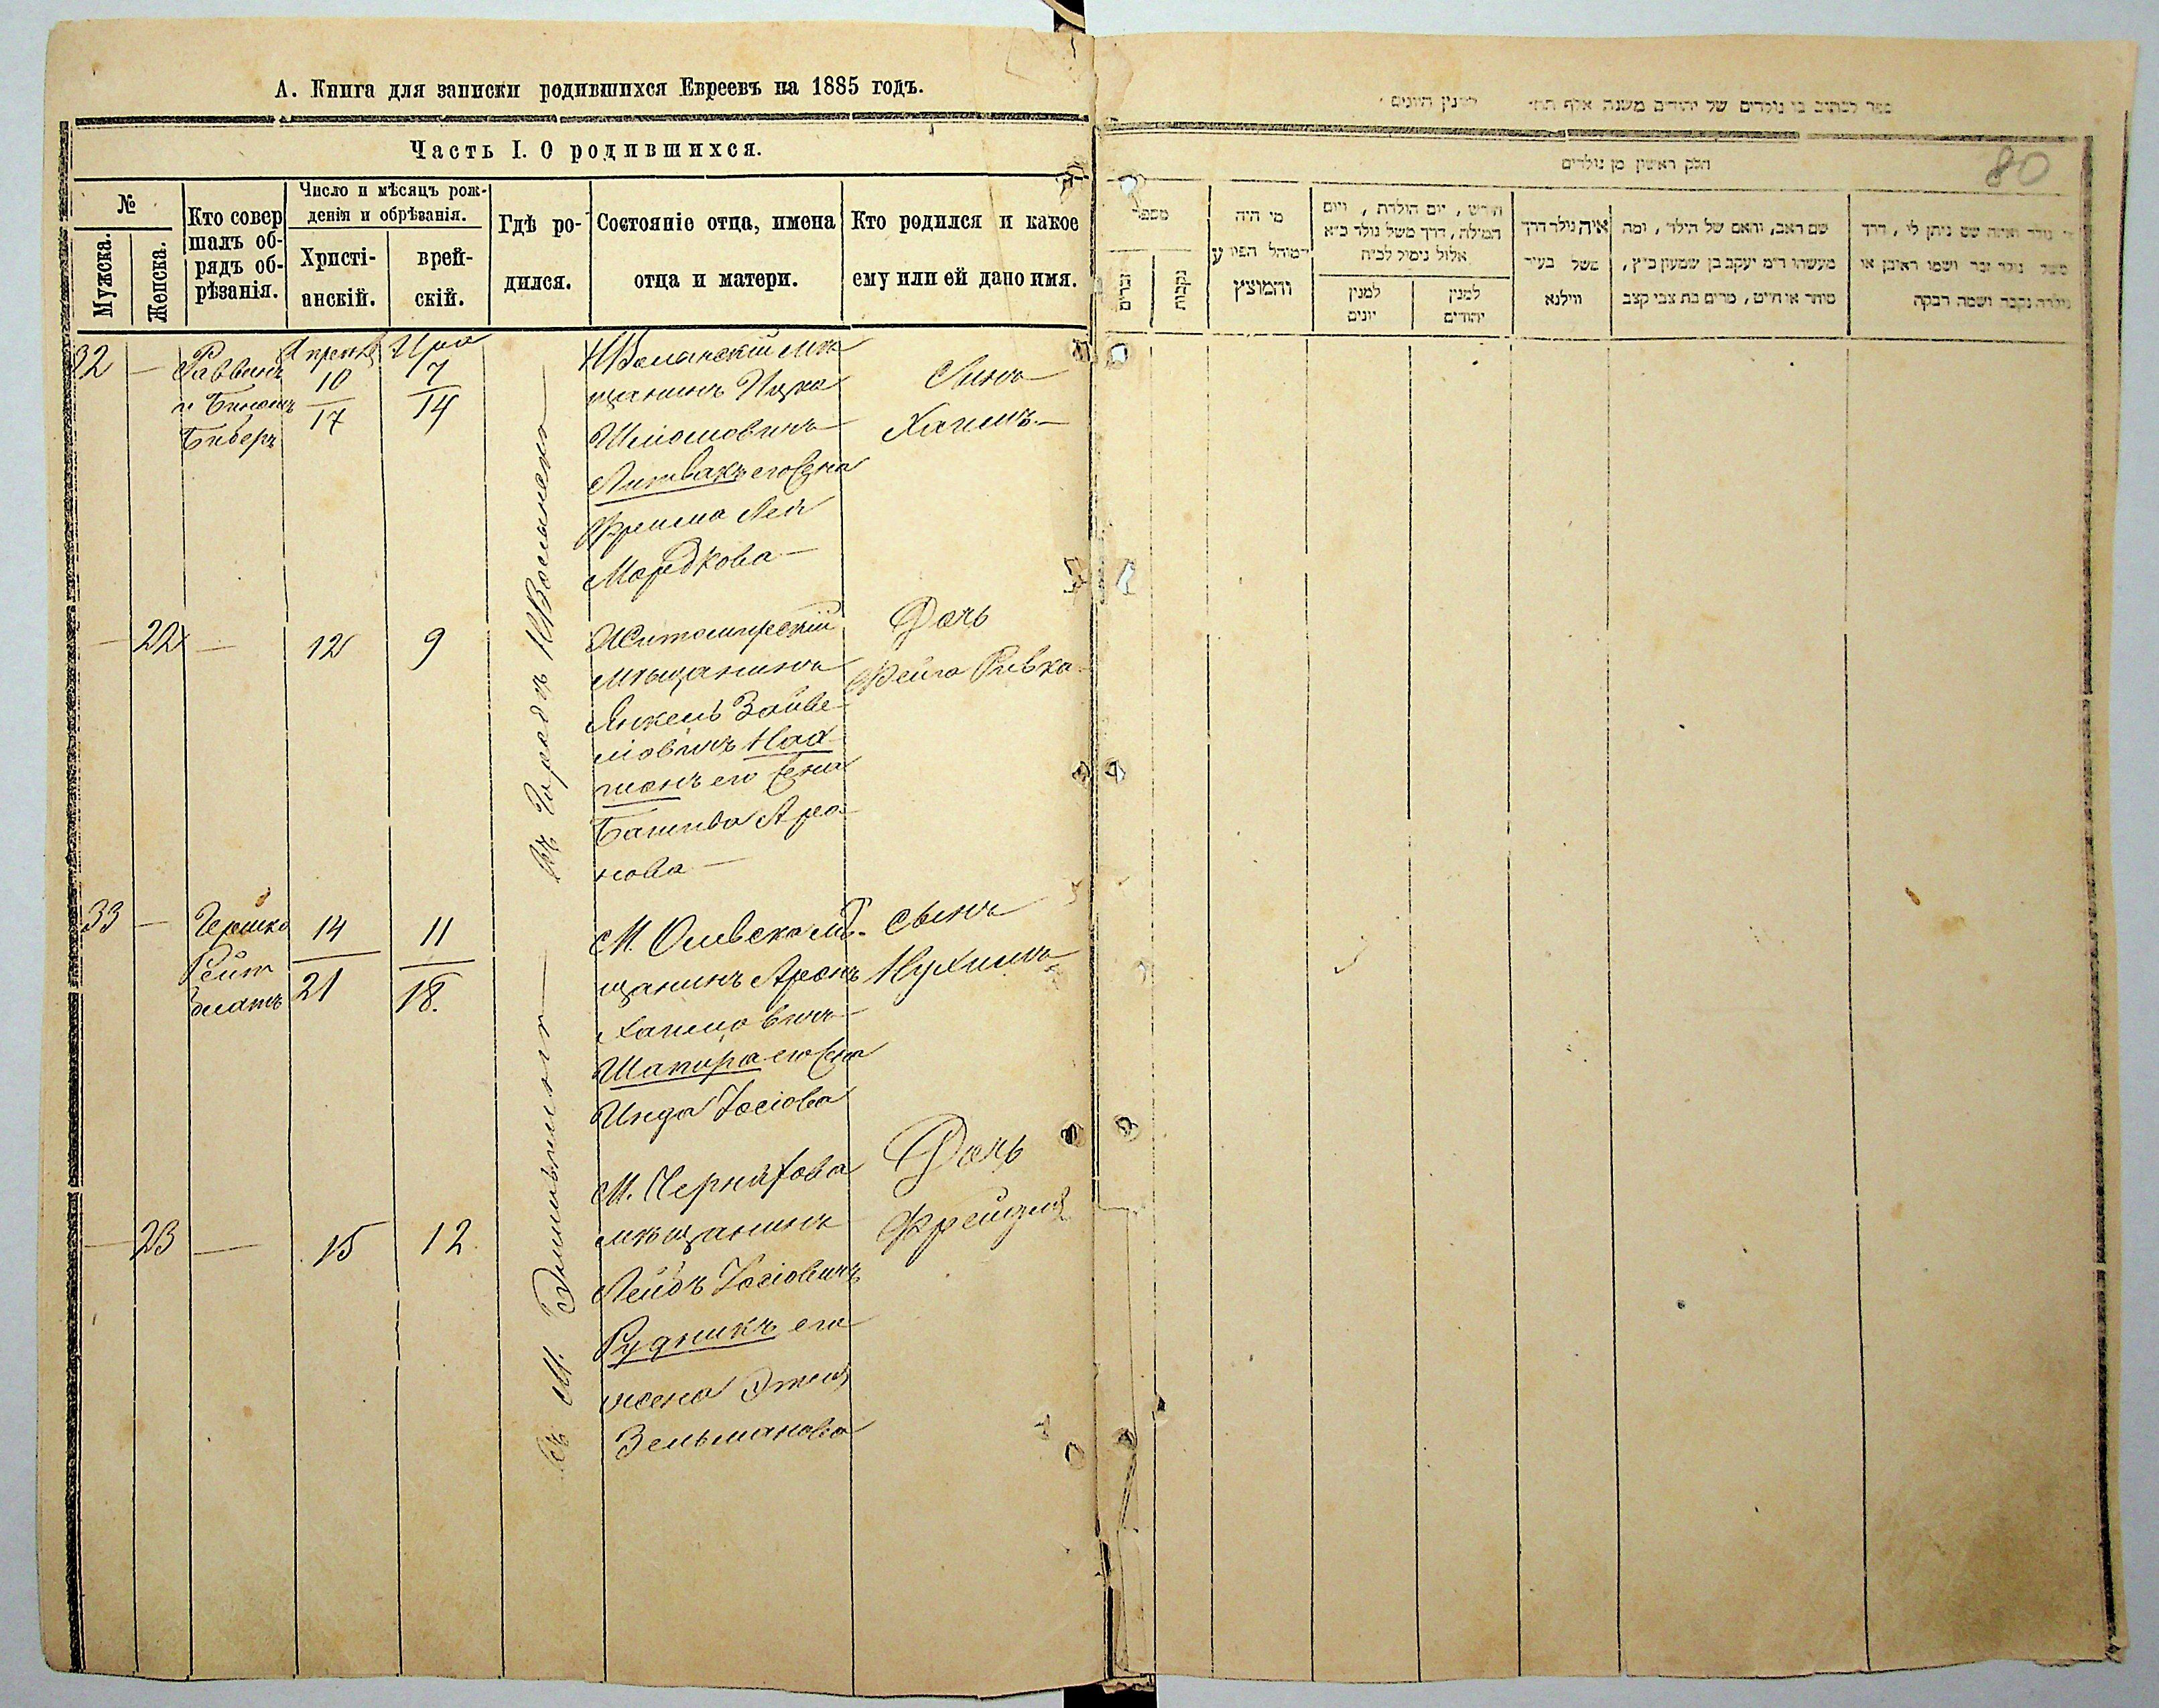 А. Книга для записки родившихся Евреевъ на 1885 годъ.
Часть I. О родившихся.
№
Мужска.
Женска.
Кто совер
шалъ об-
рядъ об-
рѣзанія.
Число и мѣсяцъ рож-
денія и обрѣзанія.
Христі-
анскій.
врей-
скій.
Гдѣ ро-
дился.
Состояніе отца, имена
отца и матери.
Кто родился и какое
ему или ей дано имя.
32 —
Раввинъ
и
Биберъ
Апрель
10
17
Ира
7
14
въ Городѣ НВолынскѣ
НВолынскій мѣ
щанинъ Ицко
Шліомовичъ
Литвакъ его жена
Фрейма Лея
Мордкова —
Сынъ
Хаимъ —
— 22 —
12
9
Житомирскій
мѣщанинъ
Янкель Зайве-
ліовичъ Над
его жена
Башива Аро
нова —
Дочь
Фейга Ривка
33 —
Гершко
Рейт
блатъ
14
21
11
18.
въ М. Эмильчинѣ —
М. Олевска мѣ-
щанинъ Аронъ
Хаимовичъ
Шапира его жена
Инда Іосіова
сынъ
Нухимъ
— 23 —
15
12
М. Черняхова
мѣщанинъ
Лейбъ Іосіовичъ
Рудникъ его
жена Этля
Зельманова
Дочь
Фрейдля
ספר לכתוב בו נולדים של יהודים משנת אלף תת׳ למנין היונים
חלק ראשון מן נולדים
80
מספר
זכרים
נקבות
מי היה
המוהל הפורע
והמוצץ
חודש, יום הולדת, ויום
המילה, דרך משל נולד כ״א
אלול נימול לכ״ח
למנין
יונים
למנין
יהודים
איה נולד דרך
משל בעיר
ווילנא
שם האב, והאם של הילד, ומה
מעשהו ד״מ יעקב בן שמעון כ״ץ,
סוחר או חייט, מרים בת צבי קצב
מי נולד ואיזה שם ניתן לו, דרך
משל נולד זכר ושמו ראובן או
נולדה נקבה ושמה רבקה